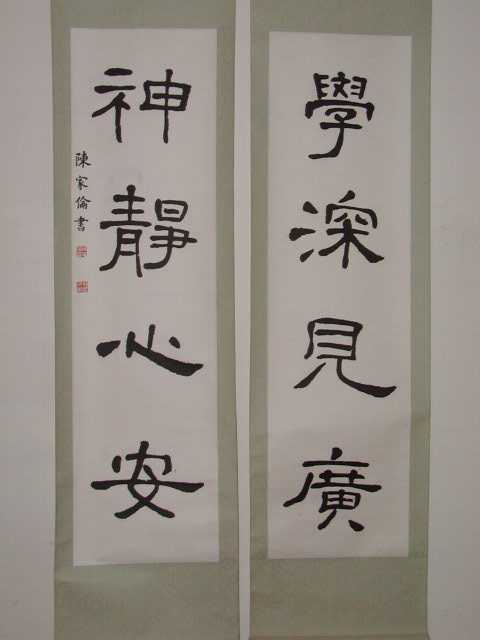 學深見廣
神靜心安
陳家倫書